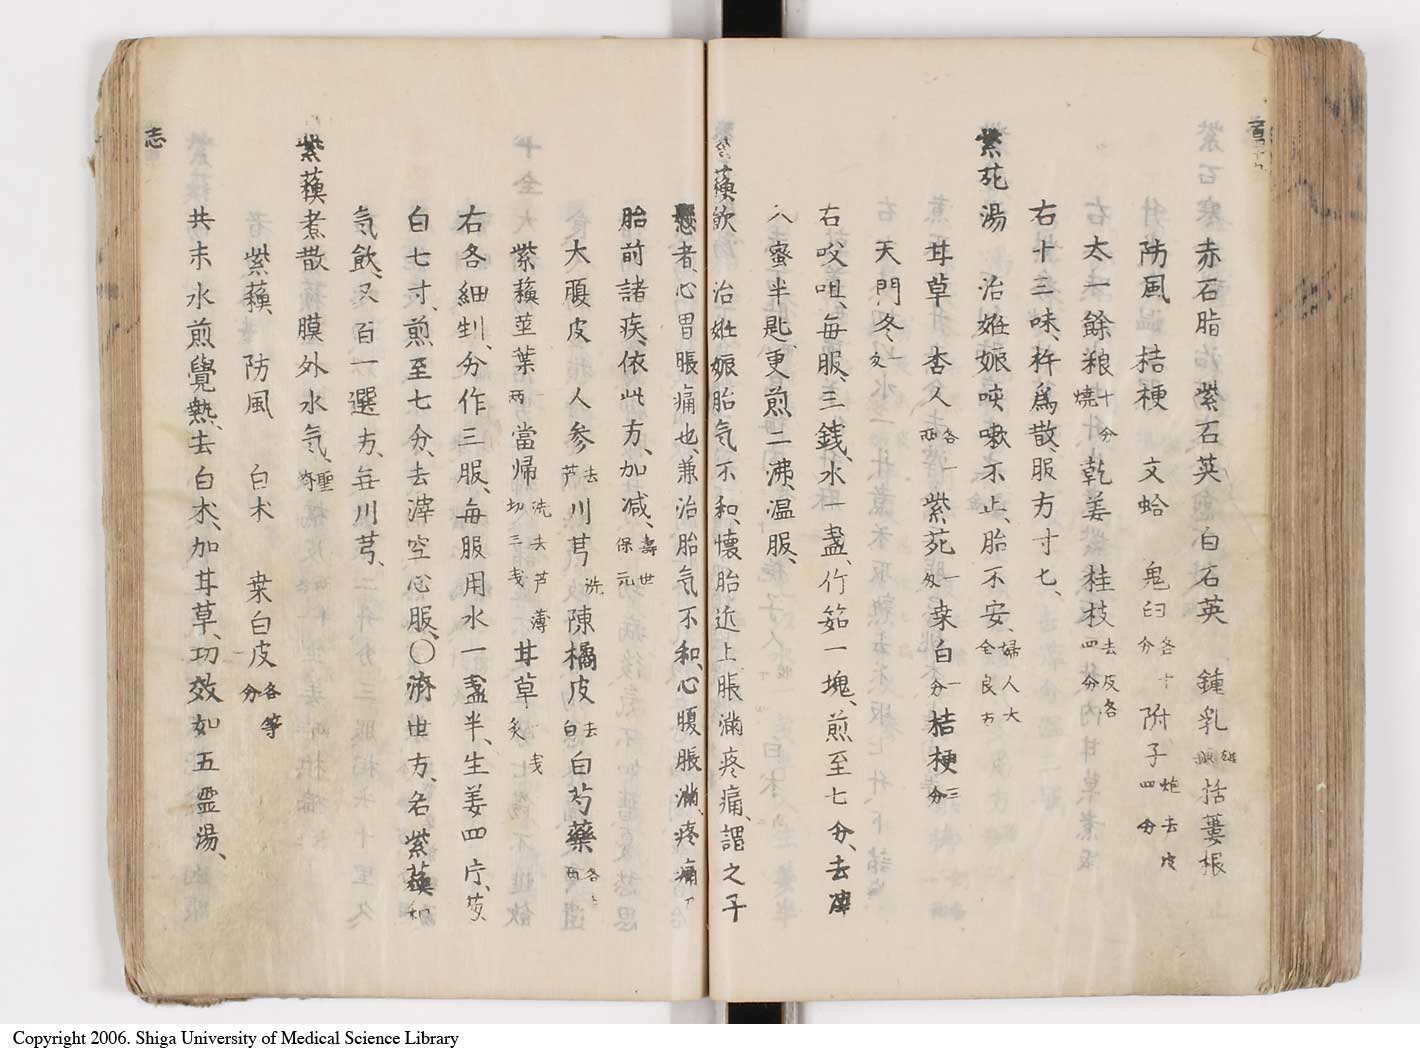 赤石脂 紫石英 白石英 鍾乳 括蔞根
防風 桔梗 文蛤 鬼臼各十分 附子炮去皮四分
太一餘粮十分燒 乾姜 桂枝去皮各四分
右十三味、杵爲散、服方寸七、
紫苑湯 治姙娠咳嗽不止、胎不安、婦人大全良方
甘草 杏人各一兩 紫苑一分 桒白一分 桔梗三分
天門冬一分
右㕮咀、毎服、三銭、水一盞、竹筎一塊、煎至七分、去滓
入蜜半匙、更煎二沸、温服、
紫蘓飲 治姙娠胎気不和、懐胎近上脹滿疼痛、謂之子
懸者、心胃脹痛也、兼治胎気不和、心腹脹滿、疼痛
胎前諸疾、依此方、加减、壽世保元
大腹皮 人参去芦 川芎洗 陳橘皮去白 白芍藥各二兩
紫蘓莖葉一兩 當帰洗去芦薄切三戔 甘草一戔炙
右各細剉、分作三服、毎服用水一盞半、生姜四片、
白七寸、煎至七分、去滓空心服、〇濟世方、名紫蘓和
気飲、又百一選方、毎川芎、
紫蘓煮散 膜外水気、聖
紫蘓 防風 白朮 桒白皮各等分
共末水煎覺熱、去白朮、加甘草、功效如五靈湯、
志
Copyright 2006. Shiga University of Medical Science Library